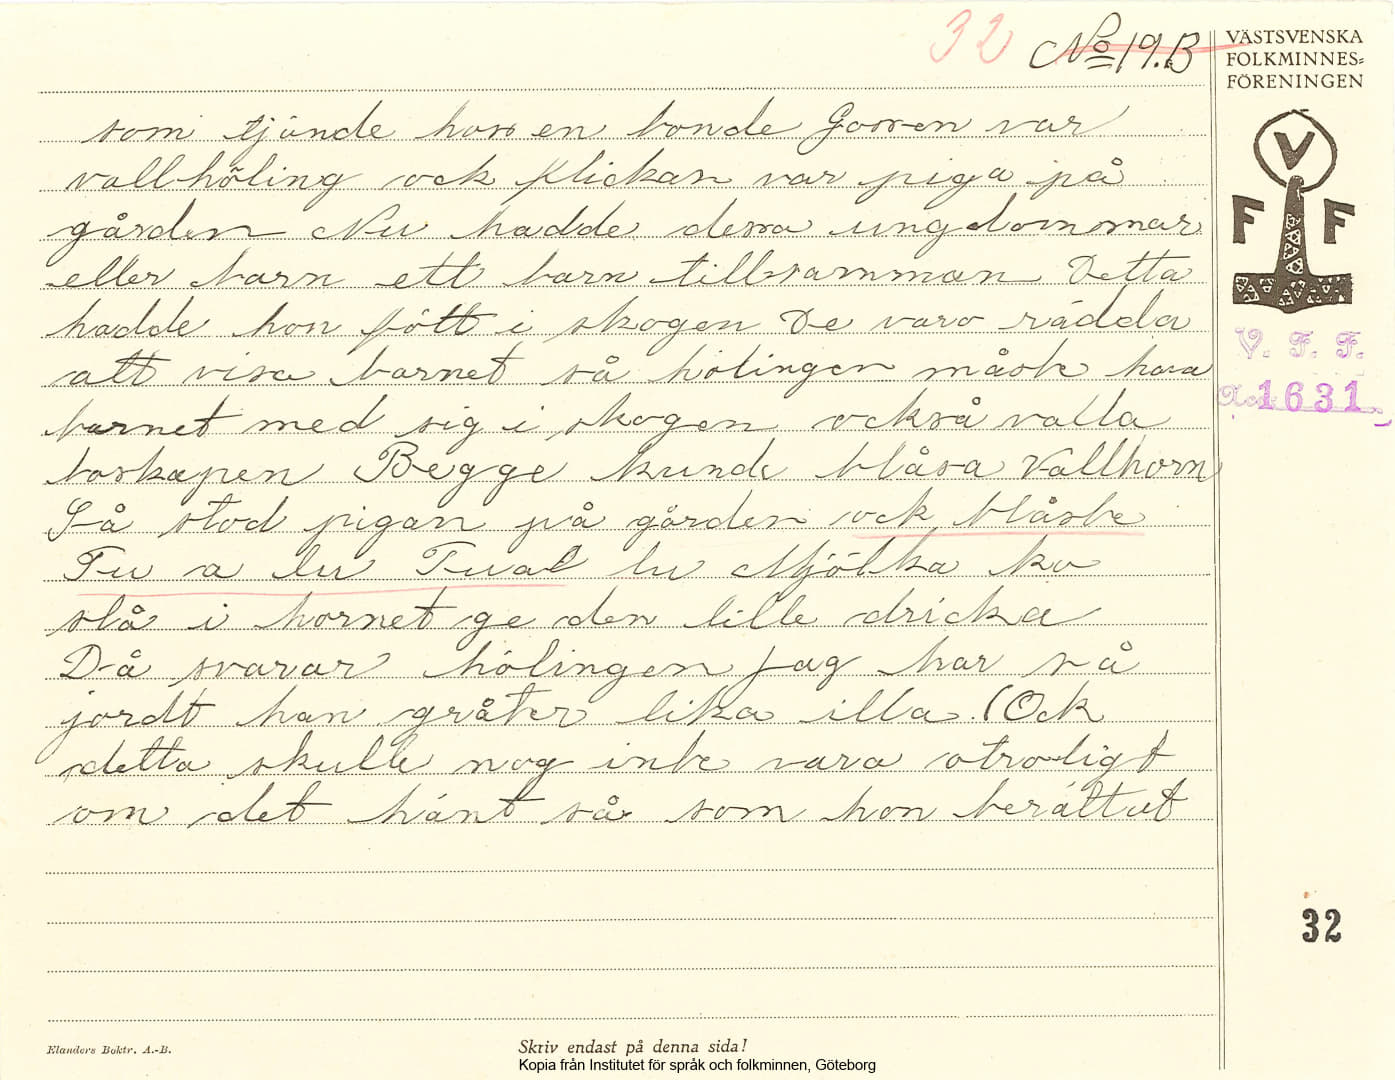 32 No 19.B
VÄSTSVENSKA
FOLKMINNES=
FÖRENINGEN
V
F F
V. F. F.
1631
som tjände hoss en bonde Gossen var
vallhöling ock flickan var piga på
gården Nu hadde dessa ungdommar
eller barn ett barn tillsamman Detta
hadde hon fött i skogen De varo rädda
att visa barnet så hölingen måste hava
barnet med sig i skogen också valla
boskapen Begge kunde blåsa Vallhorn
Så stod pigan på gården ock blåste
Tu a lu Tual lu Mjölka ko
slå i hornet ge den lille dricka
Då svarar hölingen jag har så
jordt han gråter lika illa. (Ock
detta skulle nog inte vara otroligt
om det hänt så som hon berättat
32
Elanders Boktr. A.-B.
Skriv endast på denna sida!
Kopia från Institutet för språk och folkminnen, Göteborg